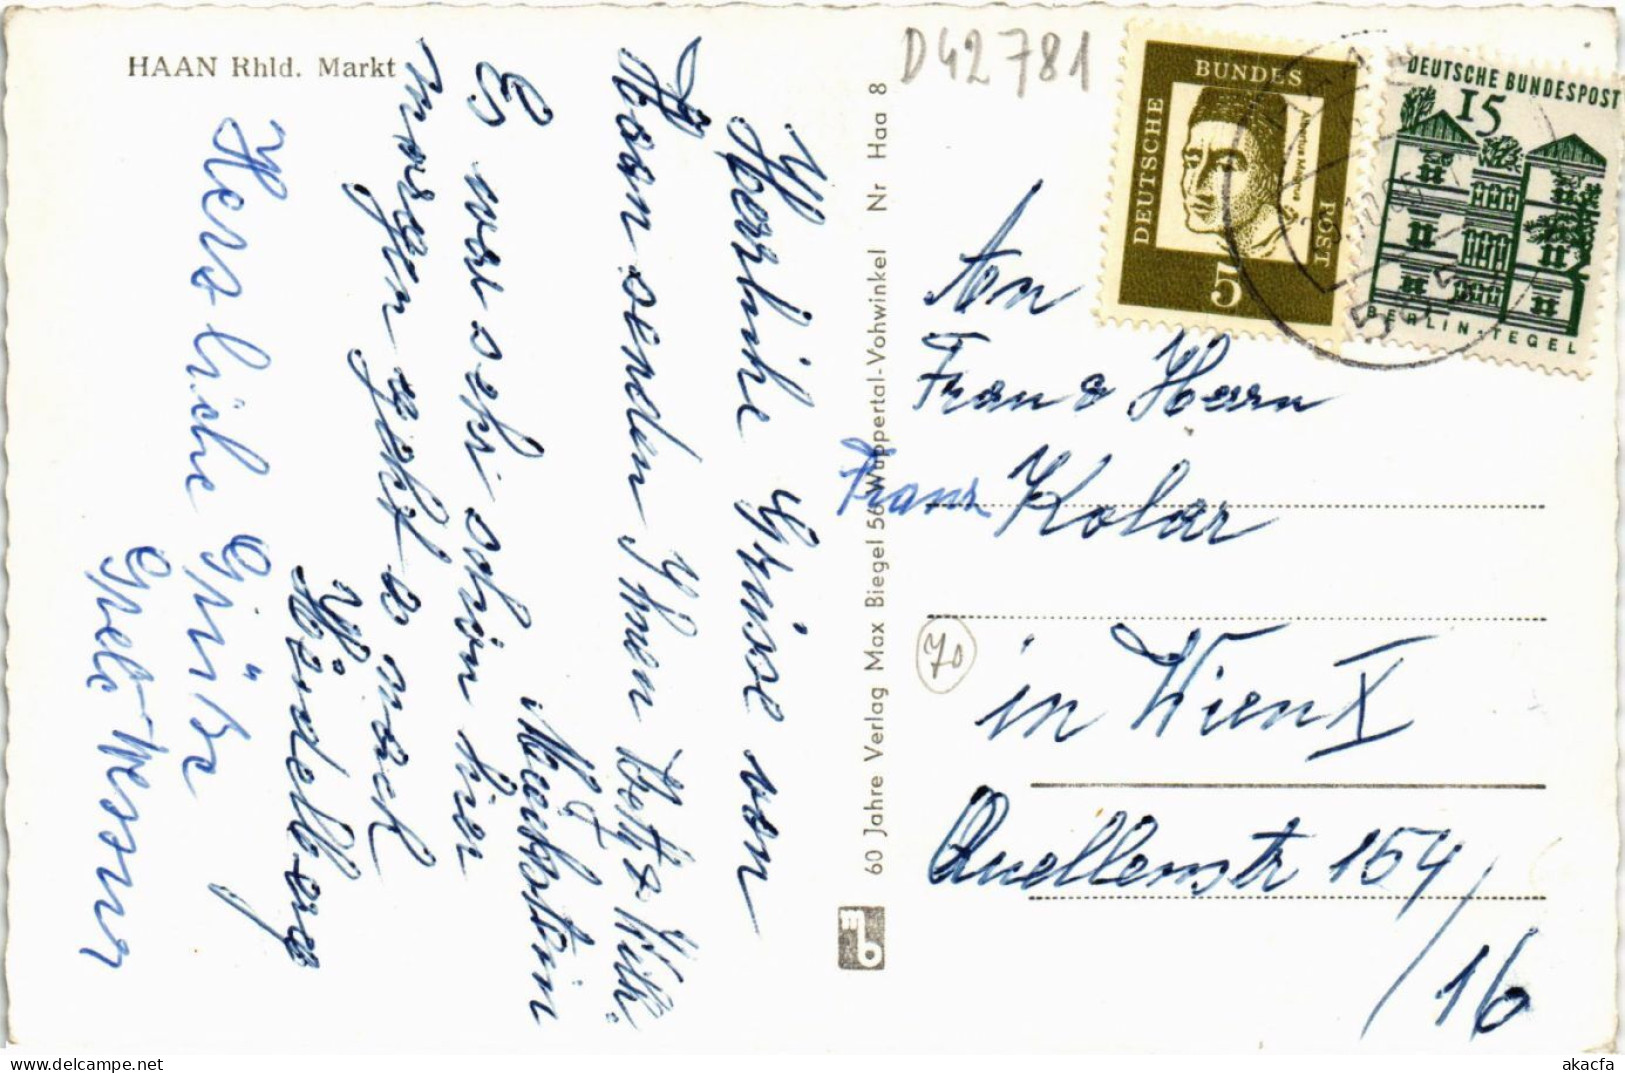 HAAN Rhld. Markt
Herzliche Grüsse von
Haan senden Ihnen
Es war sehr schön hier
morgen geht es nach
Heidelberg
Herzliche Grüße
60 Jahre Verlag Max Biegel 56 Wuppertal-Vohwinkel Nr Haa 8
mb
D42781
DEUTSCHE BUNDES POST
5
DEUTSCHE BUNDESPOST
15
BERLIN-TEGEL
An
Frau & Herrn
Franz Kolar
70
in Wien X
Quellenstr 154/
/16
akacfa